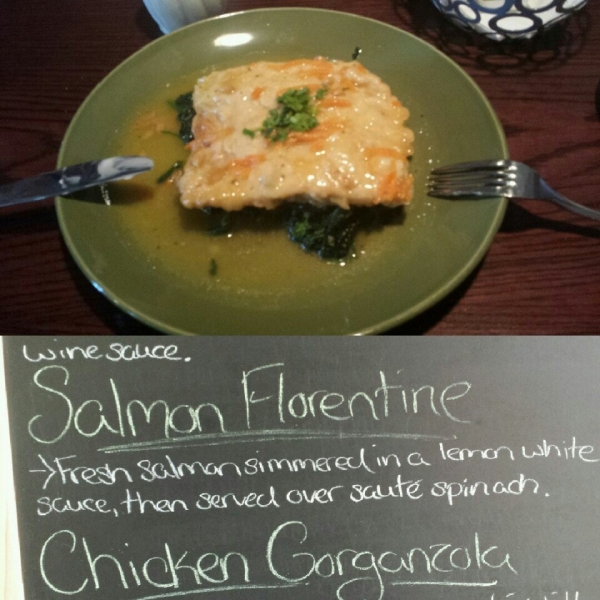 wine sauce.
Salmon Florentine
→ Fresh salmon simmered in a lemon white
sauce, then served over sauté spinach.
Chicken Gorganzola